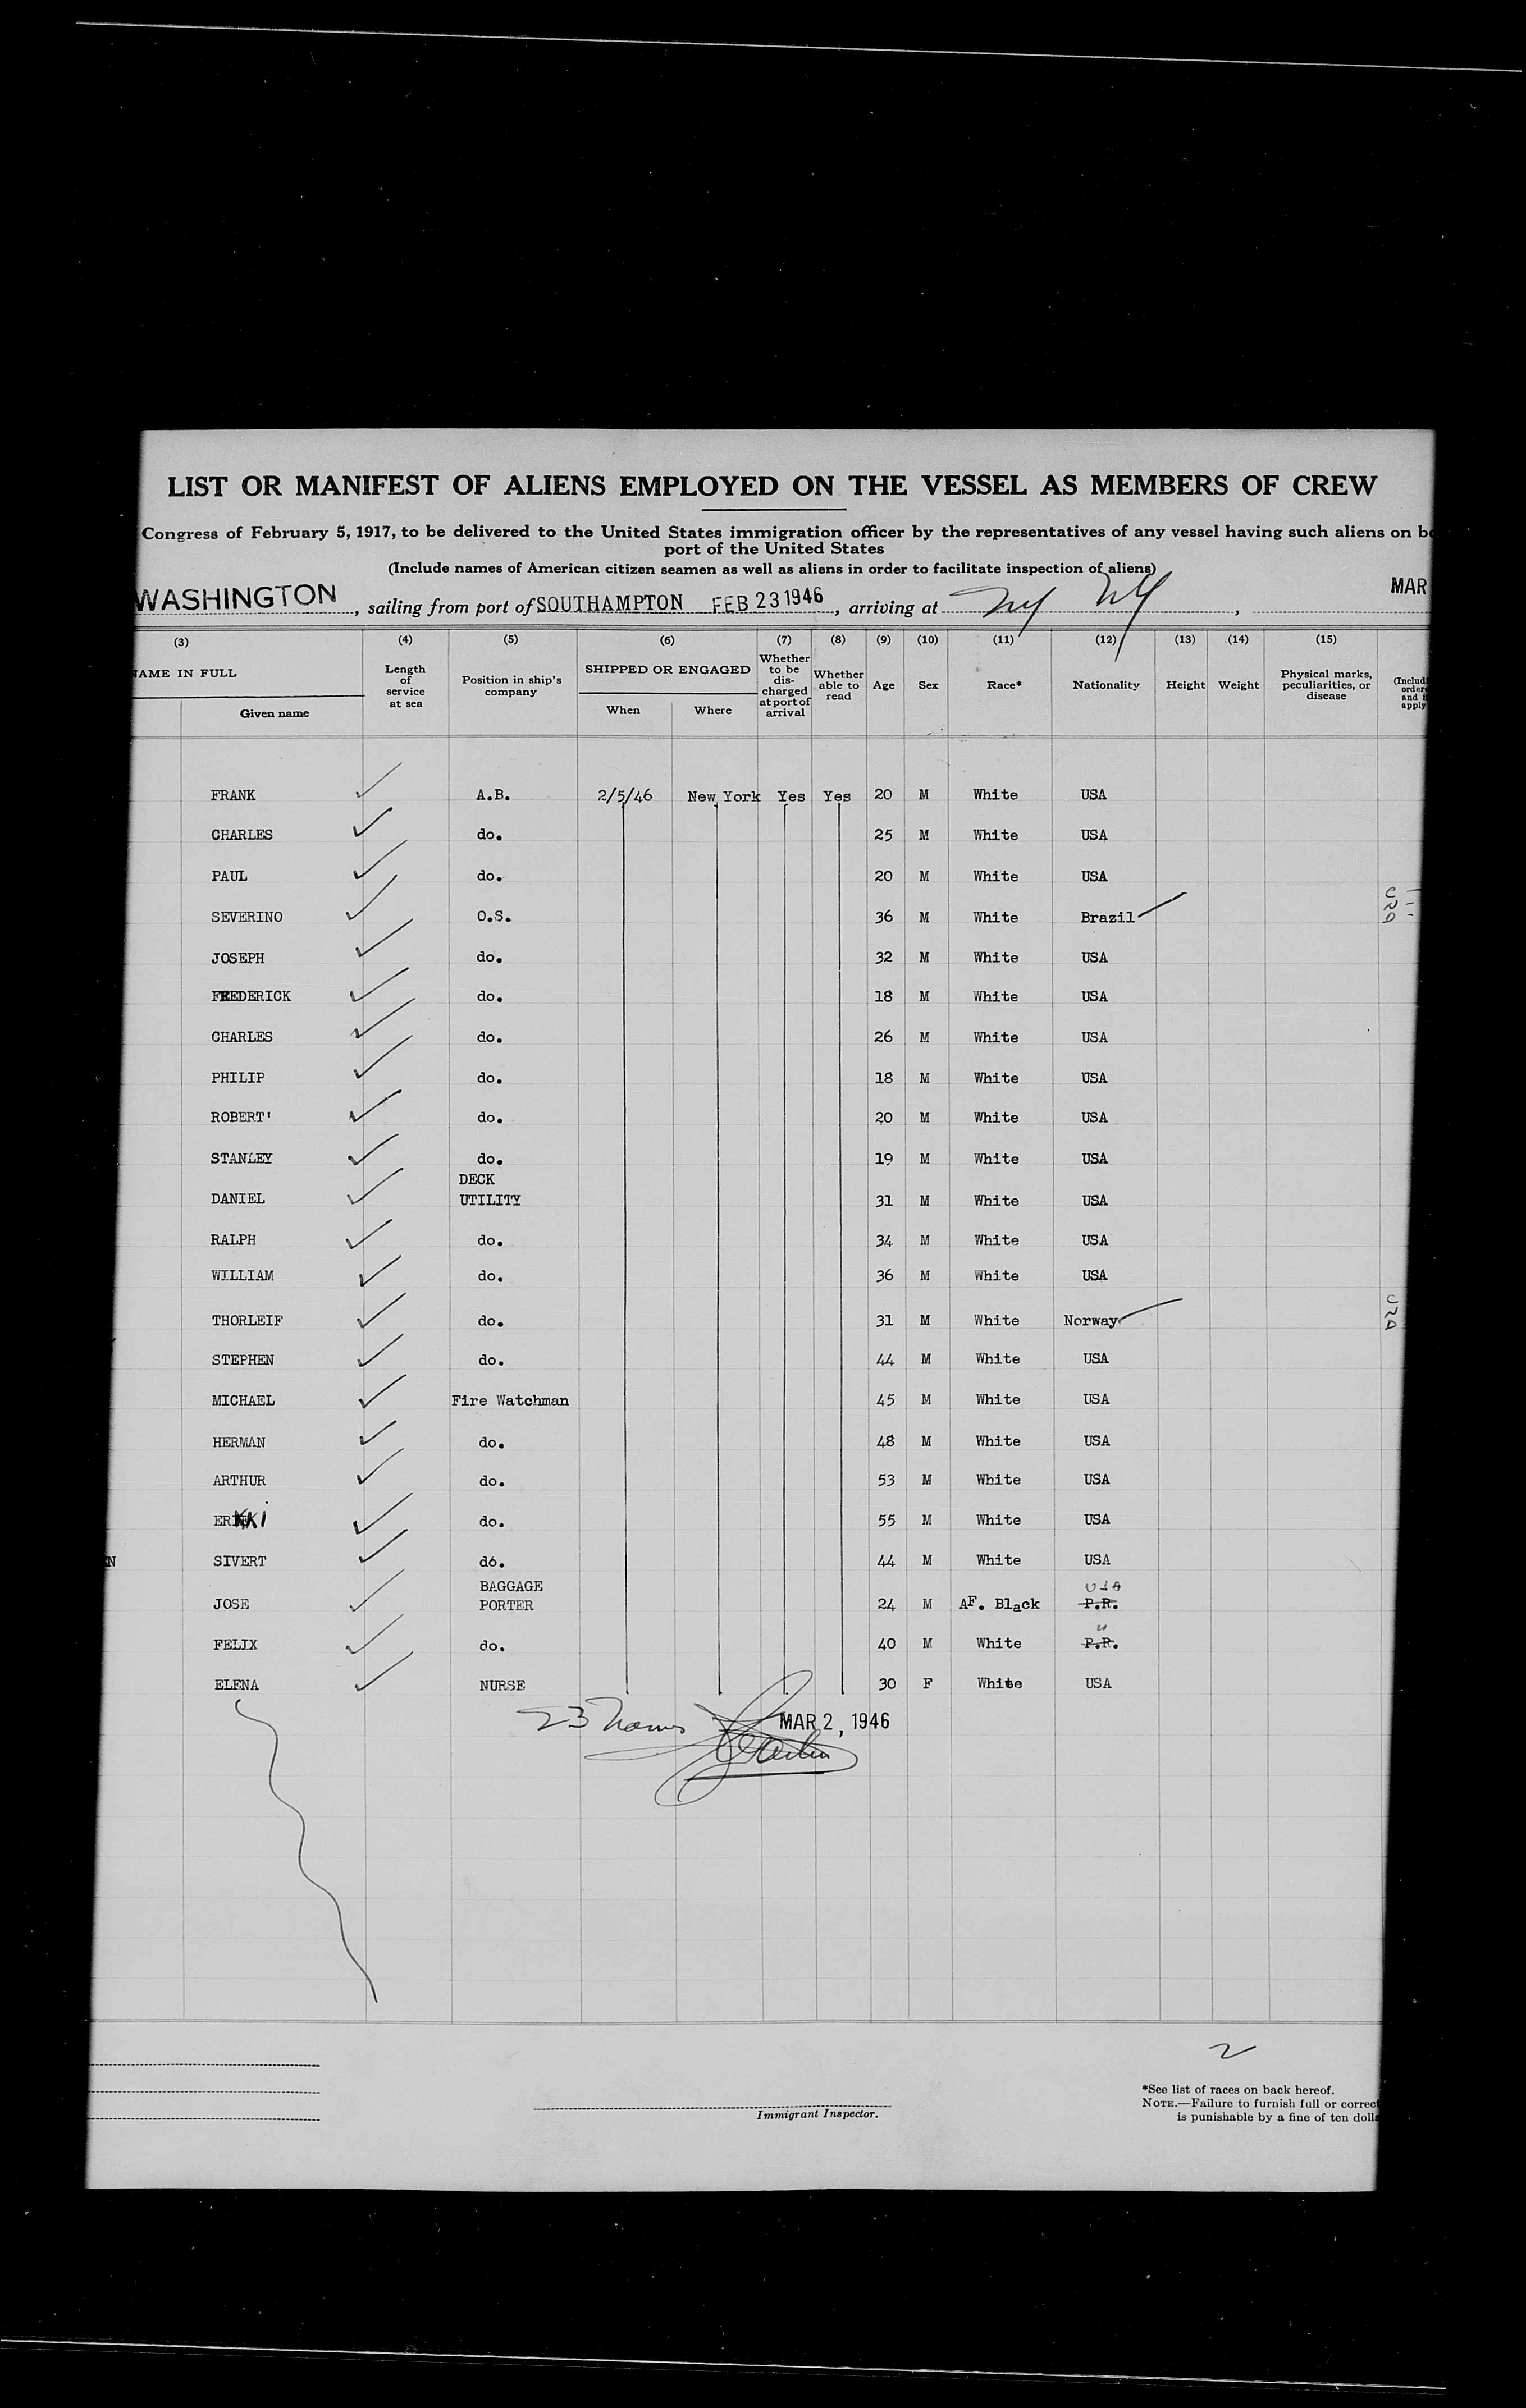 LIST OR MANIFEST OF ALIENS EMPLOYED ON THE VESSEL AS MEMBERS OF CREW
Congress of February 5, 1917, to be delivered to the United States immigration officer by the representatives of any vessel having such aliens on
port of the United States
(Include names of American citizen seamen as well as aliens in order to facilitate inspection of aliens)
WASHINGTON , sailing from port of SOUTHAMPTON FEB 23 1946 , arriving at NY NY , MAR
(3) (4) (5) (6) (7) (8) (9) (10) (11) (12) (13) (14) (15)
NAME IN FULL
Given name
Length of service at sea
Position in ship's company
SHIPPED OR ENGAGED
When Where
Whether to be discharged at port of arrival
Whether able to read
Age Sex Race* Nationality Height Weight
Physical marks, peculiarities, or disease
FRANK A.B. 2/5/46 New York Yes Yes 20 M White USA
CHARLES do. 25 M White USA
PAUL do. 20 M White USA
SEVERINO O.S. 36 M White Brazil
JOSEPH do. 32 M White USA
FREDERICK do. 18 M White USA
CHARLES do. 26 M White USA
PHILIP do. 18 M White USA
ROBERT' do. 20 M White USA
STANLEY do. 19 M White USA
DANIEL DECK UTILITY 31 M White USA
RALPH do. 34 M White USA
WILLIAM do. 36 M White USA
THORLEIF do. 31 M White Norway
STEPHEN do. 44 M White USA
MICHAEL Fire Watchman 45 M White USA
HERMAN do. 48 M White USA
ARTHUR do. 53 M White USA
ERKKi do. 55 M White USA
SIVERT do. 44 M White USA
JOSE BAGGAGE PORTER 24 M AF. Black USA P.R.
FELIX do. 40 M White " P.R.
ELENA NURSE 30 F White USA
23 Names MAR 2, 1946
2
*See list of races on back hereof.
NOTE.—Failure to furnish full or correct
is punishable by a fine of ten
Immigrant Inspector.